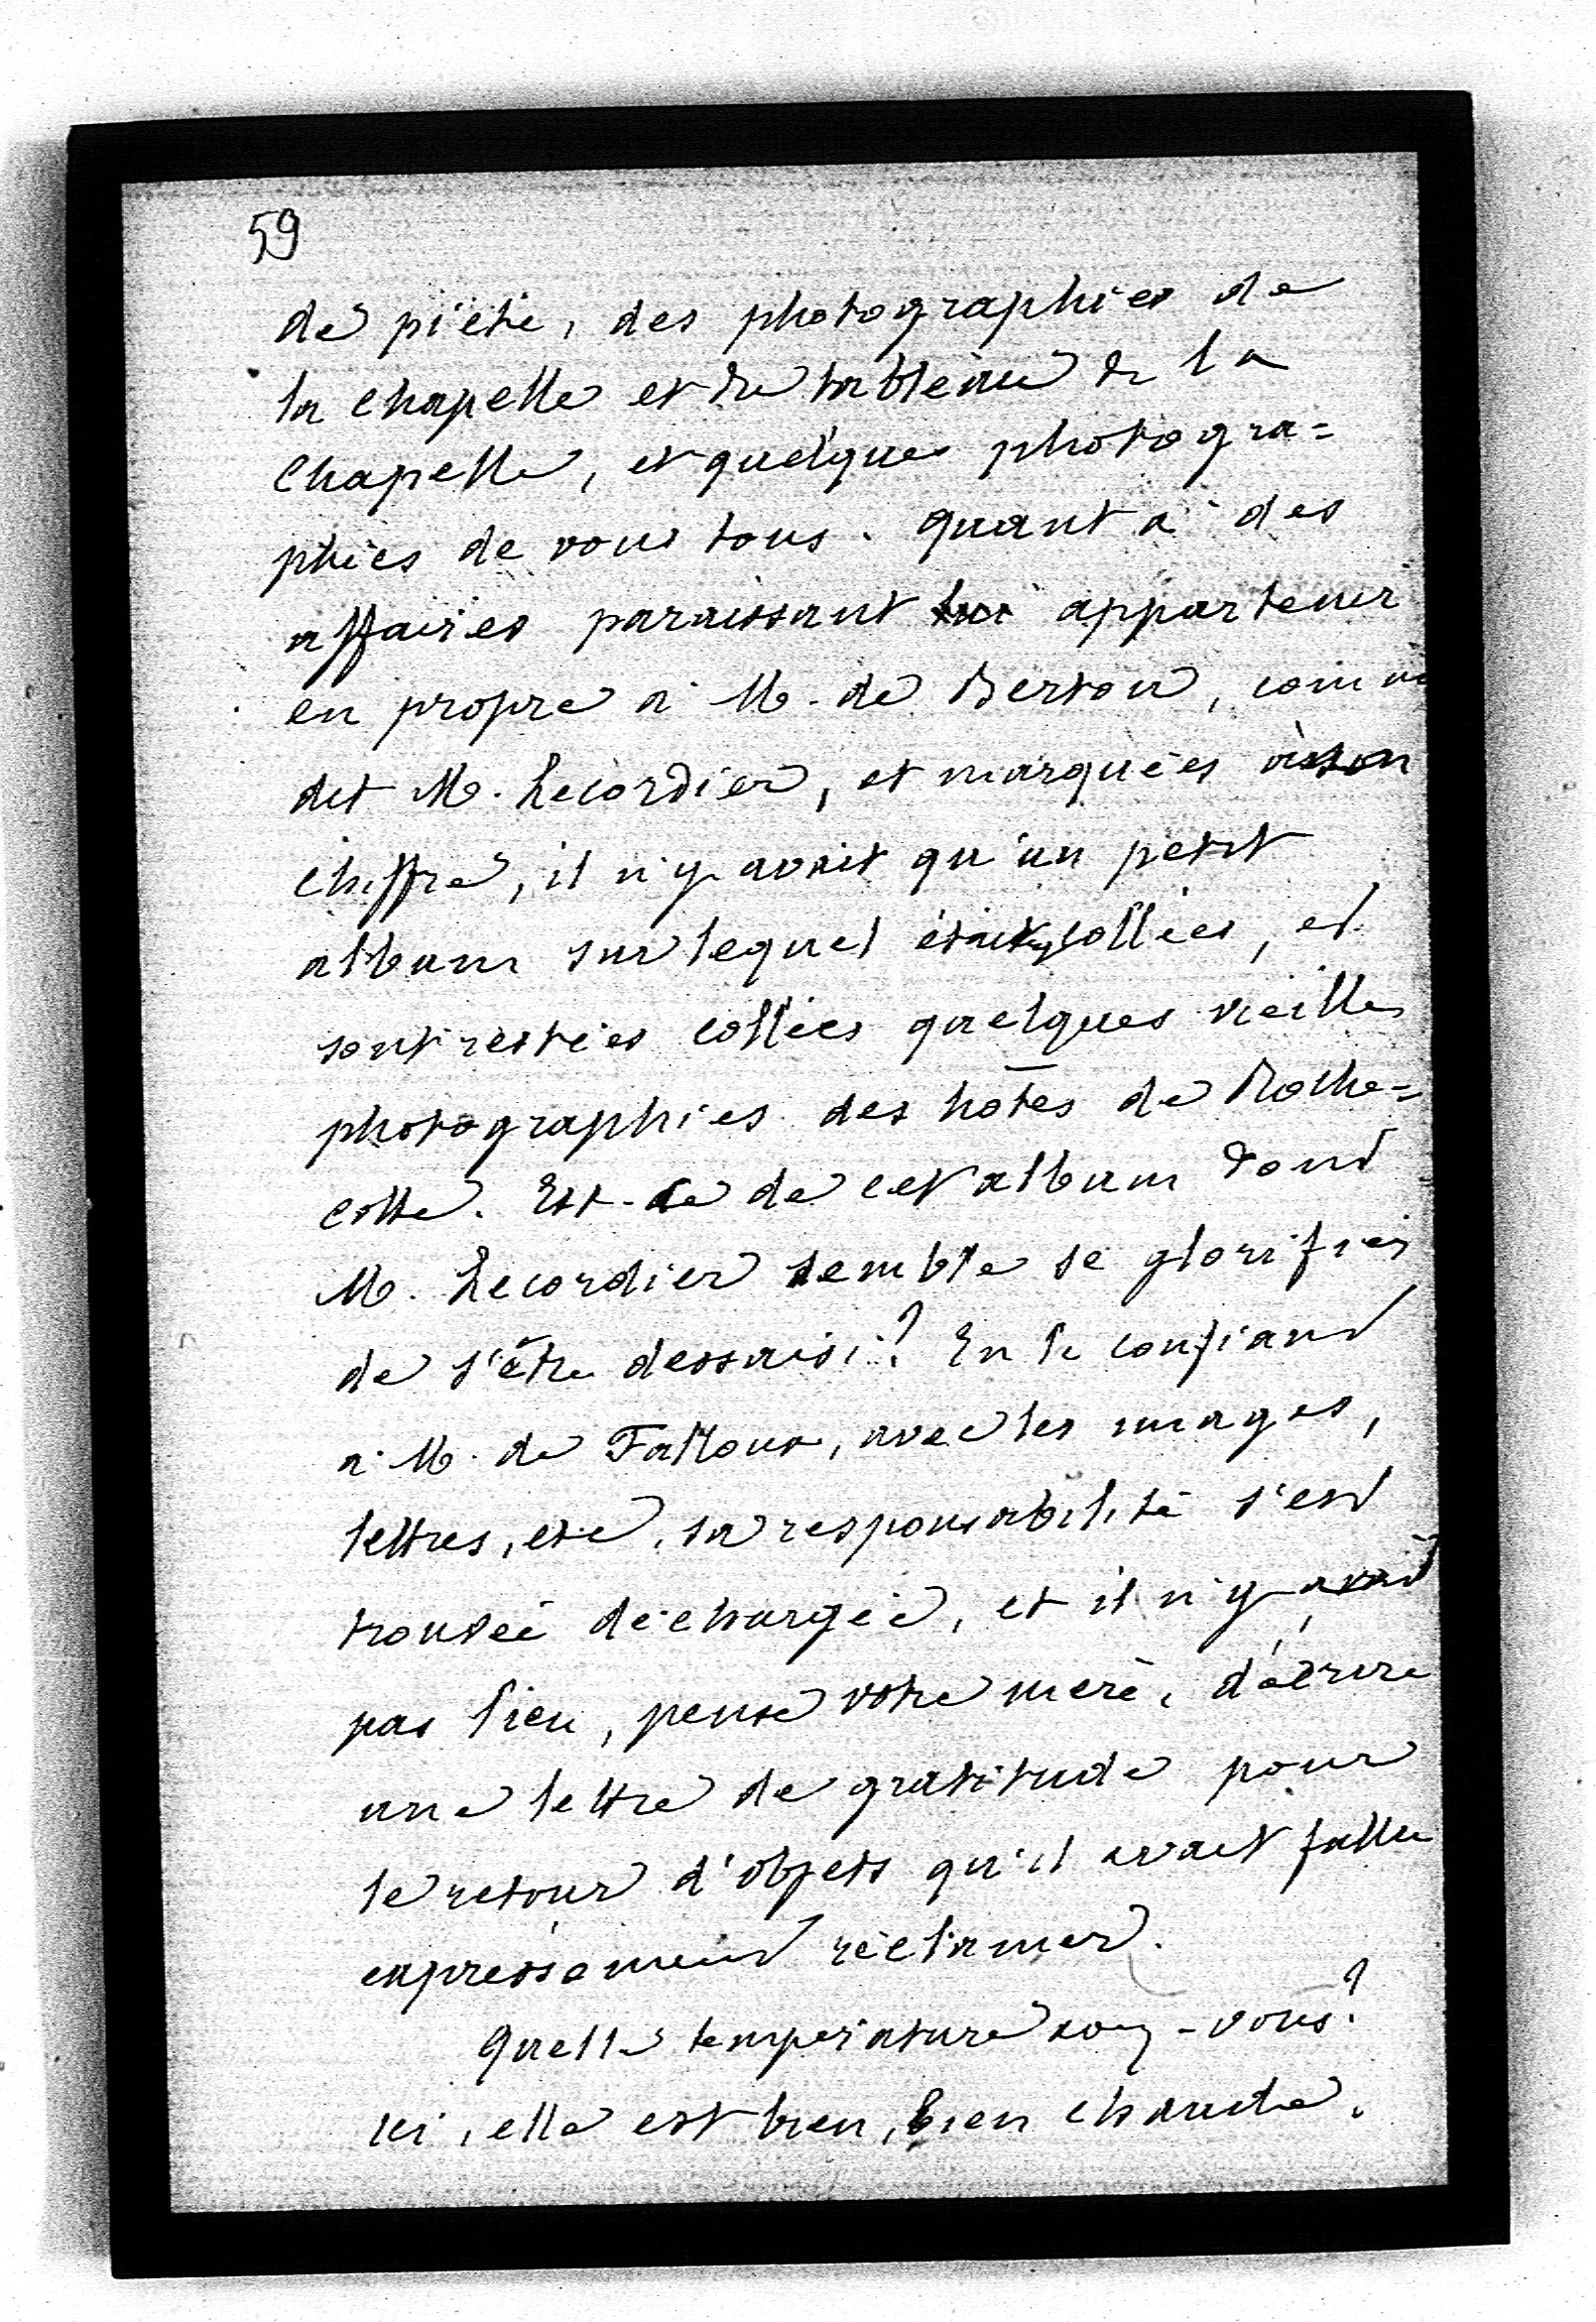 59
de piété, des photographies de
la chapelle et du tableau de la
chapelle, et quelques photogra=
phies de vous tous. Quant à des
affaires paraissant appartenir
en propre à M. de Bertou, comme
dit M. Lecordier, et marquées à son
chiffre, il n'y avait qu'un petit
album sur lequel étaient collées, et
sont restées collées quelques vieilles
photographies des hôtes de Rothe=
cotte. Est-ce de cet album dont
M. Lecordier semble se glorifier
de s'être dessaisi? En le confiant
à M. de Falloux, avec les images,
lettres, etc, sa responsabilité s'est
trouvée déchargée, et il n'y avait
pas lieu, pense votre mère, d'écrire
une lettre de gratitude pour
le retour d'objets qu'il avait fallu
expressément réclamer.
Quelle température avez-vous?
Ici, elle est bien, bien chaude.